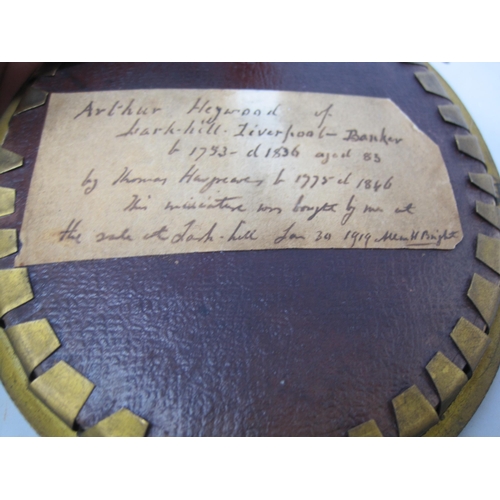 Arthur Heywood of
Lark-hill-Liverpool-Banker
b 1753-d 1836 aged 83
by Thomas Hargreaves b 1775 d 1846
This miniature was bought by me at
the sale at Lark-hill Jan 30 1919 Allan H Bright